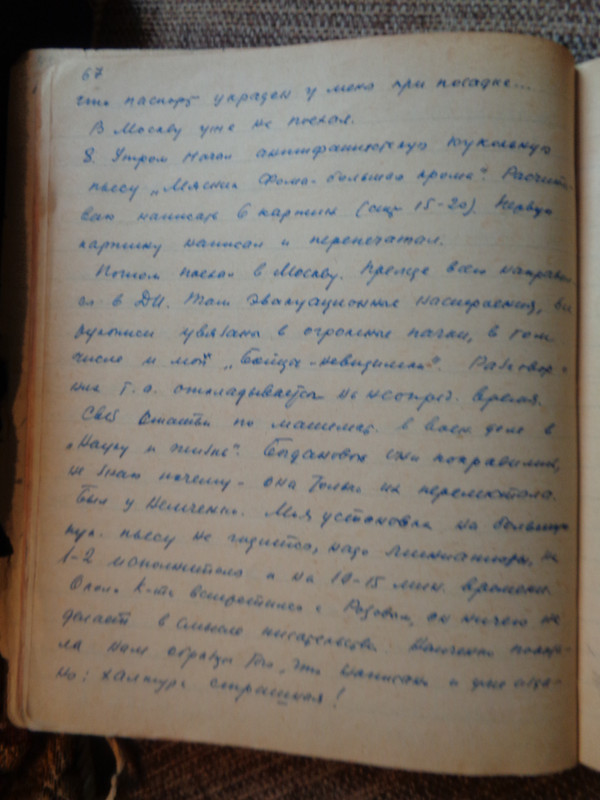 67
что паспорт украден у меня при посадке...
В Москву уже не поехал.
8. Утром начал антифашистскую кукольную
пьесу „Мясник Фома - большая крома". Рассчиты-
ваю написать 6 картин (стр 15-20). Первую
картину написал и перепечатал.
Потом поехал в Москву. Прежде всего направил-
ся в ДИ. Там эвакуационные настроения, все
рукописи увязаны в огромные пачки, в том
числе и мои „Бойцы-невидимки". Разговор
мне т.о. откладывается на неопред. время.
Сдал статьи по математ. в воен. деле в
„Науку и жизнь".
они понравились,
не знаю почему - она только их перелистала.
Был у Немченко. Моя установка на большую
кук. пьесу не годится, надо миниатюры, на
1-2 исполнителя и на 10-15 мин. времени.
Около К-та встретился с Родовым, он ничего не
делает в смысле писательства.
ла нам образцы того, что написано и уже
но: халтура страшная!